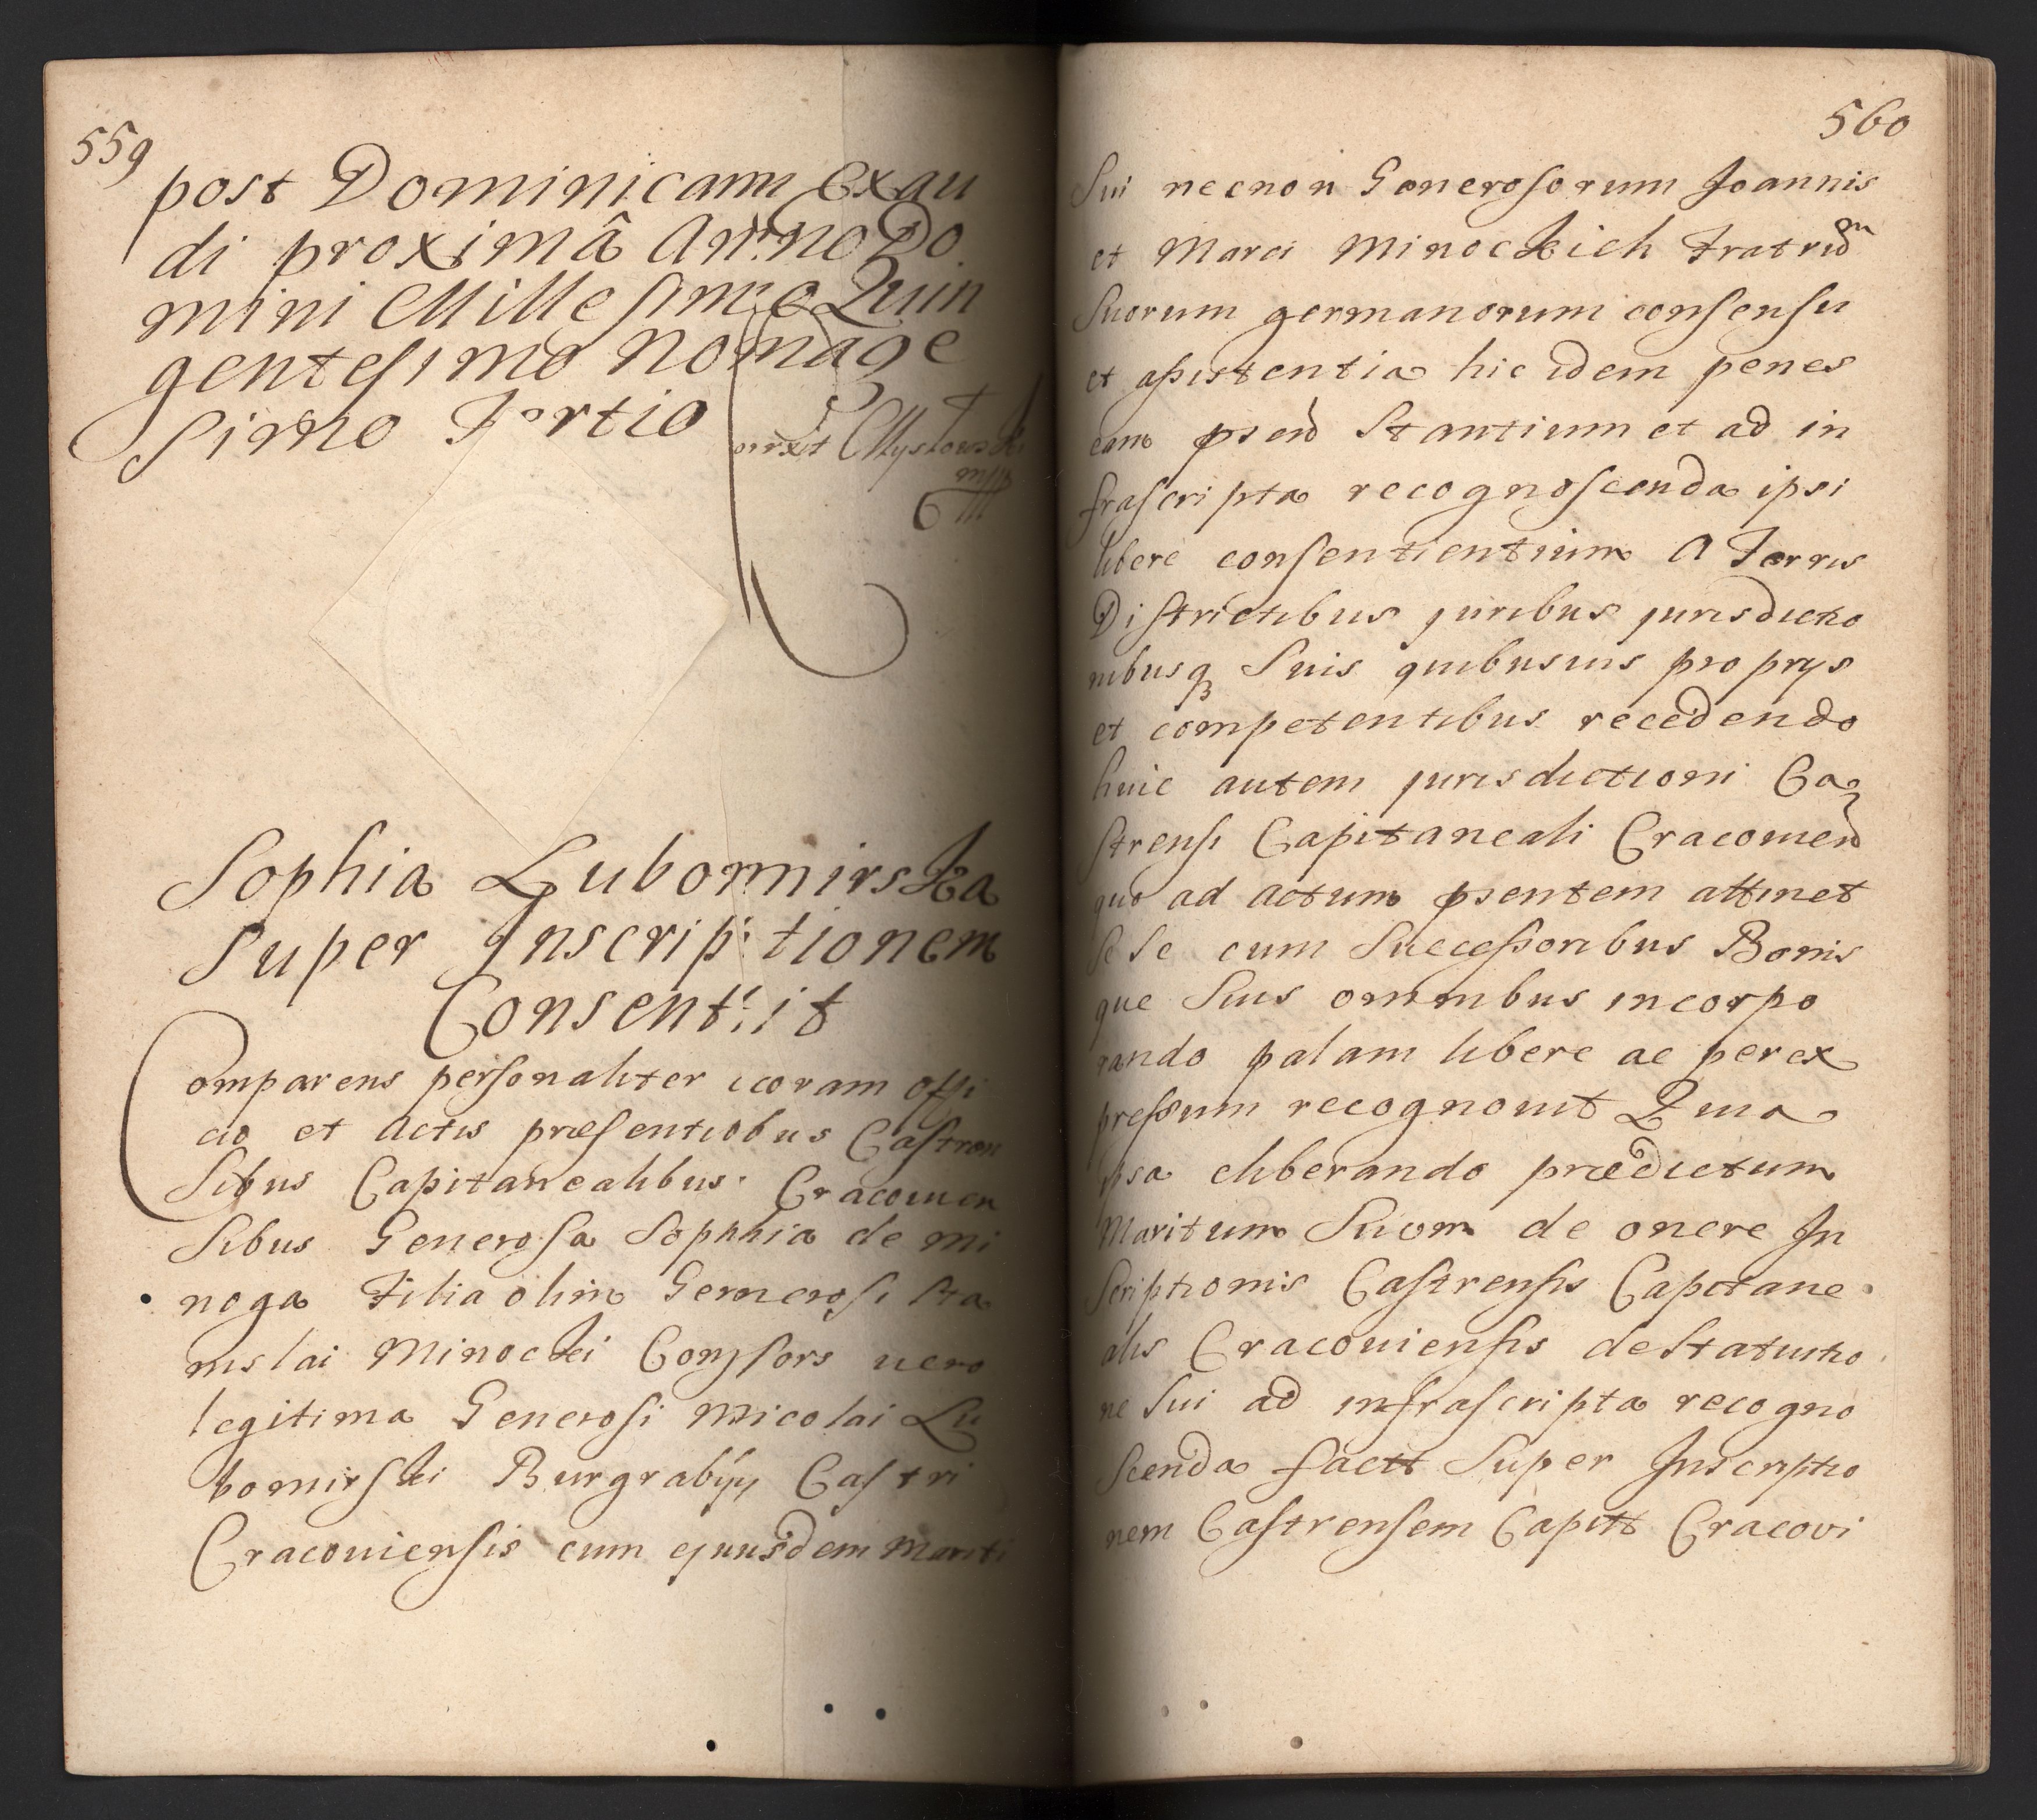 559
post Dominicam Exau
di proximâ Anno Do
mini Millesimo Quin
gentesimo Nonage
simo Tertio
Sophia Lubomirska
Super Inscriptionem
Consentit
Comparens personaliter coram offi
cio et Actis præsentiobus Castren
sibus Capitanealibus Cracouien
sibus Generosa Sophhia de mi
noga Filia olim Generosi Sta
nislai Minocki Consors uero
legitima Generosi Nicolai Lu
bomirski Burgrabÿÿ Castri
Cracouiensis cum ejuusdem Mariti
560
Sui necnon Generosorum Joannis
et Marci Minockich Fratrum
Suorum germanorum consensu
et assistentia hic idem penes
eam psen Stantium et ad in
frascripta recognoscenda ipsi
libere consentientium A Terris
Districtibus juribus jurisdictio
nibusq Suis quibusuis proprys
et competentibus recedendo
huic autem jurisdictioni Ca
strensi Capitaneali Cracouien
quo ad actum psentem attinet
se se cum Successoribus Bonis
que Suis omnibus incorpo
rando palam libere ac per ex
pressum recognouit Quia
ipsa eliberando prædictum
Maritum Suom de onere In
scriptionis Castrensis Capitane
alis Cracouiensis de Statuitio
ne Sui ad infrascripta recogno
scenda factt Super Inscriptio
nem Castrensem Capitt Cracovi